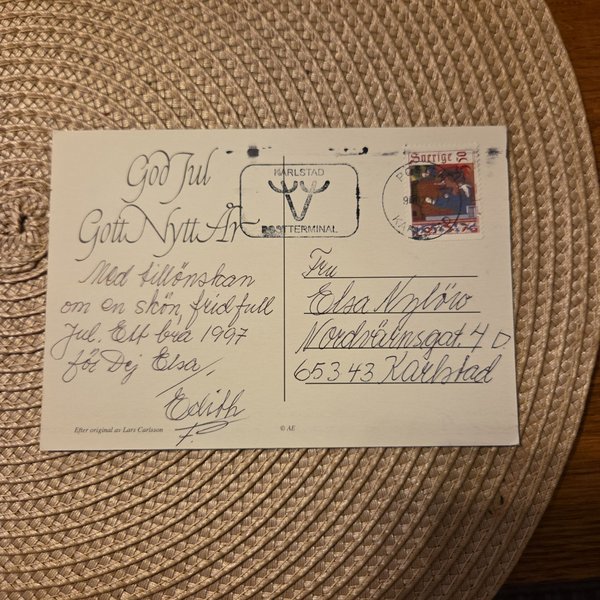 God Jul
Gott Nytt År
Med tillönskan
om en skön, fridfull
Jul. Ett bra 1997
för Dej Elsa,
Edith
Efter original av Lars Carlsson
© AE
KARLSTAD
POSTTERMINAL
Sverige
Fru
Elsa Nylöw
Nordvärnsgat. 4 D
653 43 Karlstad